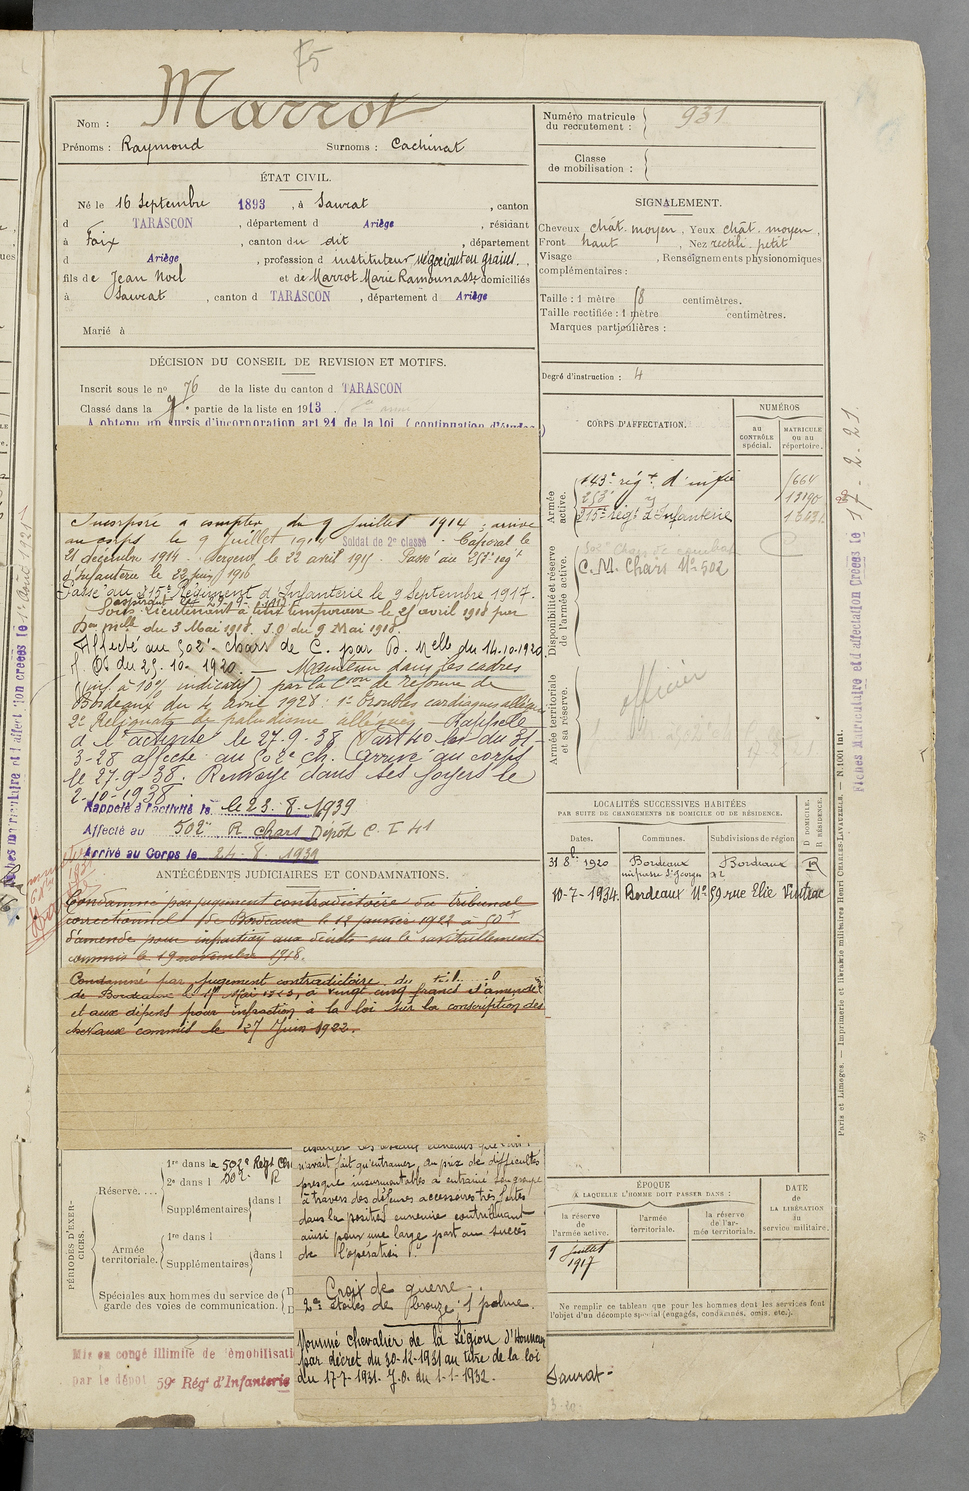 75
Nom : Marrot
Prénoms : Raymond Surnoms : Cachinat
ÉTAT CIVIL.
Né le 16 Septembre 1893, à Saurat, canton
d TARASCON, département d Ariège, résidant
à Foix, canton du dit, département
d Ariège, profession d instituteur négociant en grains.
fils de Jean Noel et de Marrot Marie Ramounasse domiciliés
à Saurat, canton d TARASCON, département d Ariège
Marié à
DÉCISION DU CONSEIL DE REVISION ET MOTIFS.
Inscrit sous le nº 76 de la liste du canton d TARASCON
Classé dans la partie de la liste en 1913
A obtenu un sursis d'incorporation art 21 de la loi (continuation d'études)
Incorporé à compter du 9 juillet 1914 ; arrivé
au corps le 9 juillet 1914 Soldat de 2e classe. Caporal le
21 décembre 1914. Sergent le 22 avril 1915 Passé au 253e regt
d'Infanterie le 22 juin 1916
Passé au 215e Régiment d'Infanterie le 9 Septembre 1917.
Sous-lieutenant à titre temporaire le 25 avril 1918 par
Don melle du 3 Mai 1918. J.O. du 9 Mai 1918.
Affecté au 502e chars de C. par D. Melle du 14-10-1920
J. Of du 25-10-1920. — Maintenu dans les cadres
(Inf. à 10% indicatif) par la Cion de réforme de
Bordeaux du 4 avril 1928 : 1º Troubles cardiaques allégués
2º Reliquats de paludisme allégués — Rappelé
à l'activité le 27-9-38 (art 40 loi du 31-
3-28 affecté au 502e ch. Arrivé au corps
le 27-9-38. Renvoyé dans ses foyers le
2-10-1938
Rappelé à l'activité le le 23-8-1939
Affecté au 502e R chars Dépôt C.I 41
Arrivé au Corps le 24-8-1939
ANTÉCÉDENTS JUDICIAIRES ET CONDAMNATIONS.
Condamné par jugement contradictoire du tribunal
correctionnel de Bordeaux le 12 janvier 1922 à 50f
d'amende pour infraction aux décrets sur le ravitaillement
commis le 19 novembre 1918.
Condamné par jugement contradictoire du
de Bordeaux le à vingt cinq francs d'amende
et aux dépens pour infraction à la loi sur la conscription des
chevaux commis le 27 Juin 1922.
PÉRIODES D'EXERCICES.
Réserve....
1re dans le 502e Régt Ch
2e dans l 502e R
Supplémentaires dans l
Armée territoriale.
1re dans l
Supplémentaires dans l
Spéciales aux hommes du service de
garde des voies de communication.
n'avait fait qu'entamer, au prix de difficultés
presque insurmontables a entrainé son groupe
à travers des défenses accessoires très fortes
dans la position ennemie contribuant
ainsi pour une large part au succès
de l'opération".
Croix de guerre -
2 étoiles de bronze : 1 palme.
Nommé chevalier de la Légion d'Honneur
par décret du 30-12-1931 au titre de la loi
du 17-7-1931. J.O. du 1-1-1932.
Mis en congé illimité de démobilisati
par le dépôt 59e Régt d'Infanterie
Numéro matricule du recrutement : 931
Classe de mobilisation :
SIGNALEMENT.
Cheveux chât. moyen, Yeux chât. moyen,
Front haut, Nez rectil. petit
Visage , Renseignements physionomiques
complémentaires :
Taille : 1 mètre 58 centimètres.
Taille rectifiée : 1 mètre centimètres.
Marques particulières :
Degré d'instruction : 4
CORPS D'AFFECTATION.
NUMÉROS
au CONTRÔLE spécial.
MATRICULE ou au répertoire.
Armée active.
143e régt d'infie 1664
253e 13190
215e régt d'Infanterie
Disponibilité et réserve de l'armée active.
502e Chars de combat
C.M. Chars Nº 502
Armée territoriale et sa réserve.
officier
LOCALITÉS SUCCESSIVES HABITÉES
PAR SUITE DE CHANGEMENTS DE DOMICILE OU DE RÉSIDENCE.
Dates. Communes. Subdivisions de région D DOMICILE. R RÉSIDENCE.
31 8b 1920 Bordeaux Bordeaux R
impasse St Georges
10-7-1934. Bordeaux Nº 59 rue Elie Vintrac
ÉPOQUE
À LAQUELLE L'HOMME DOIT PASSER DANS :
la réserve de l'armée active.
l'armée territoriale.
la réserve de l'armée territoriale.
DATE de LA LIBÉRATION du service militaire.
9 Juillet 1917
Ne remplir ce tableau que pour les hommes dont les services font
l'objet d'un décompte spécial (engagés, condamnés, omis, etc.).
Saurat -
Fiches Matriculaire et d'affectation Créées le 17-2-21.
Paris et Limoges. — Imprimerie et librairie militaires Henri CHARLES-LAVAUZELLE. — N. 1001 int.